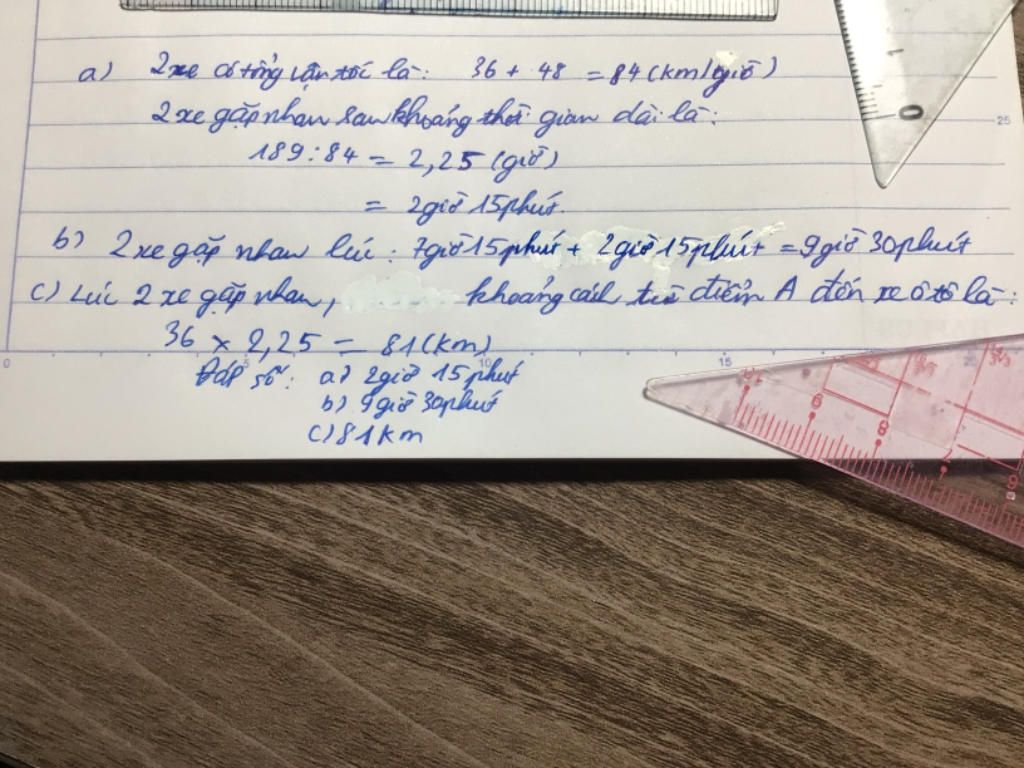 a) 2 xe có tổng vận tốc là: 36 + 48 = 84 (km/giờ)
2 xe gặp nhau sau khoảng thời gian dài là:
189 : 84 = 2,25 (giờ)
= 2 giờ 15 phút.
b) 2 xe gặp nhau lúc: 7 giờ 15 phút + 2 giờ 15 phút = 9 giờ 30 phút
c) Lúc 2 xe gặp nhau, khoảng cách từ điểm A đến xe ô tô là:
36 x 2,25 = 81 (km)
Đáp số: a) 2 giờ 15 phút
b) 9 giờ 30 phút
c) 81 km
1
0
25
0
5
10
15
6
8
7
9